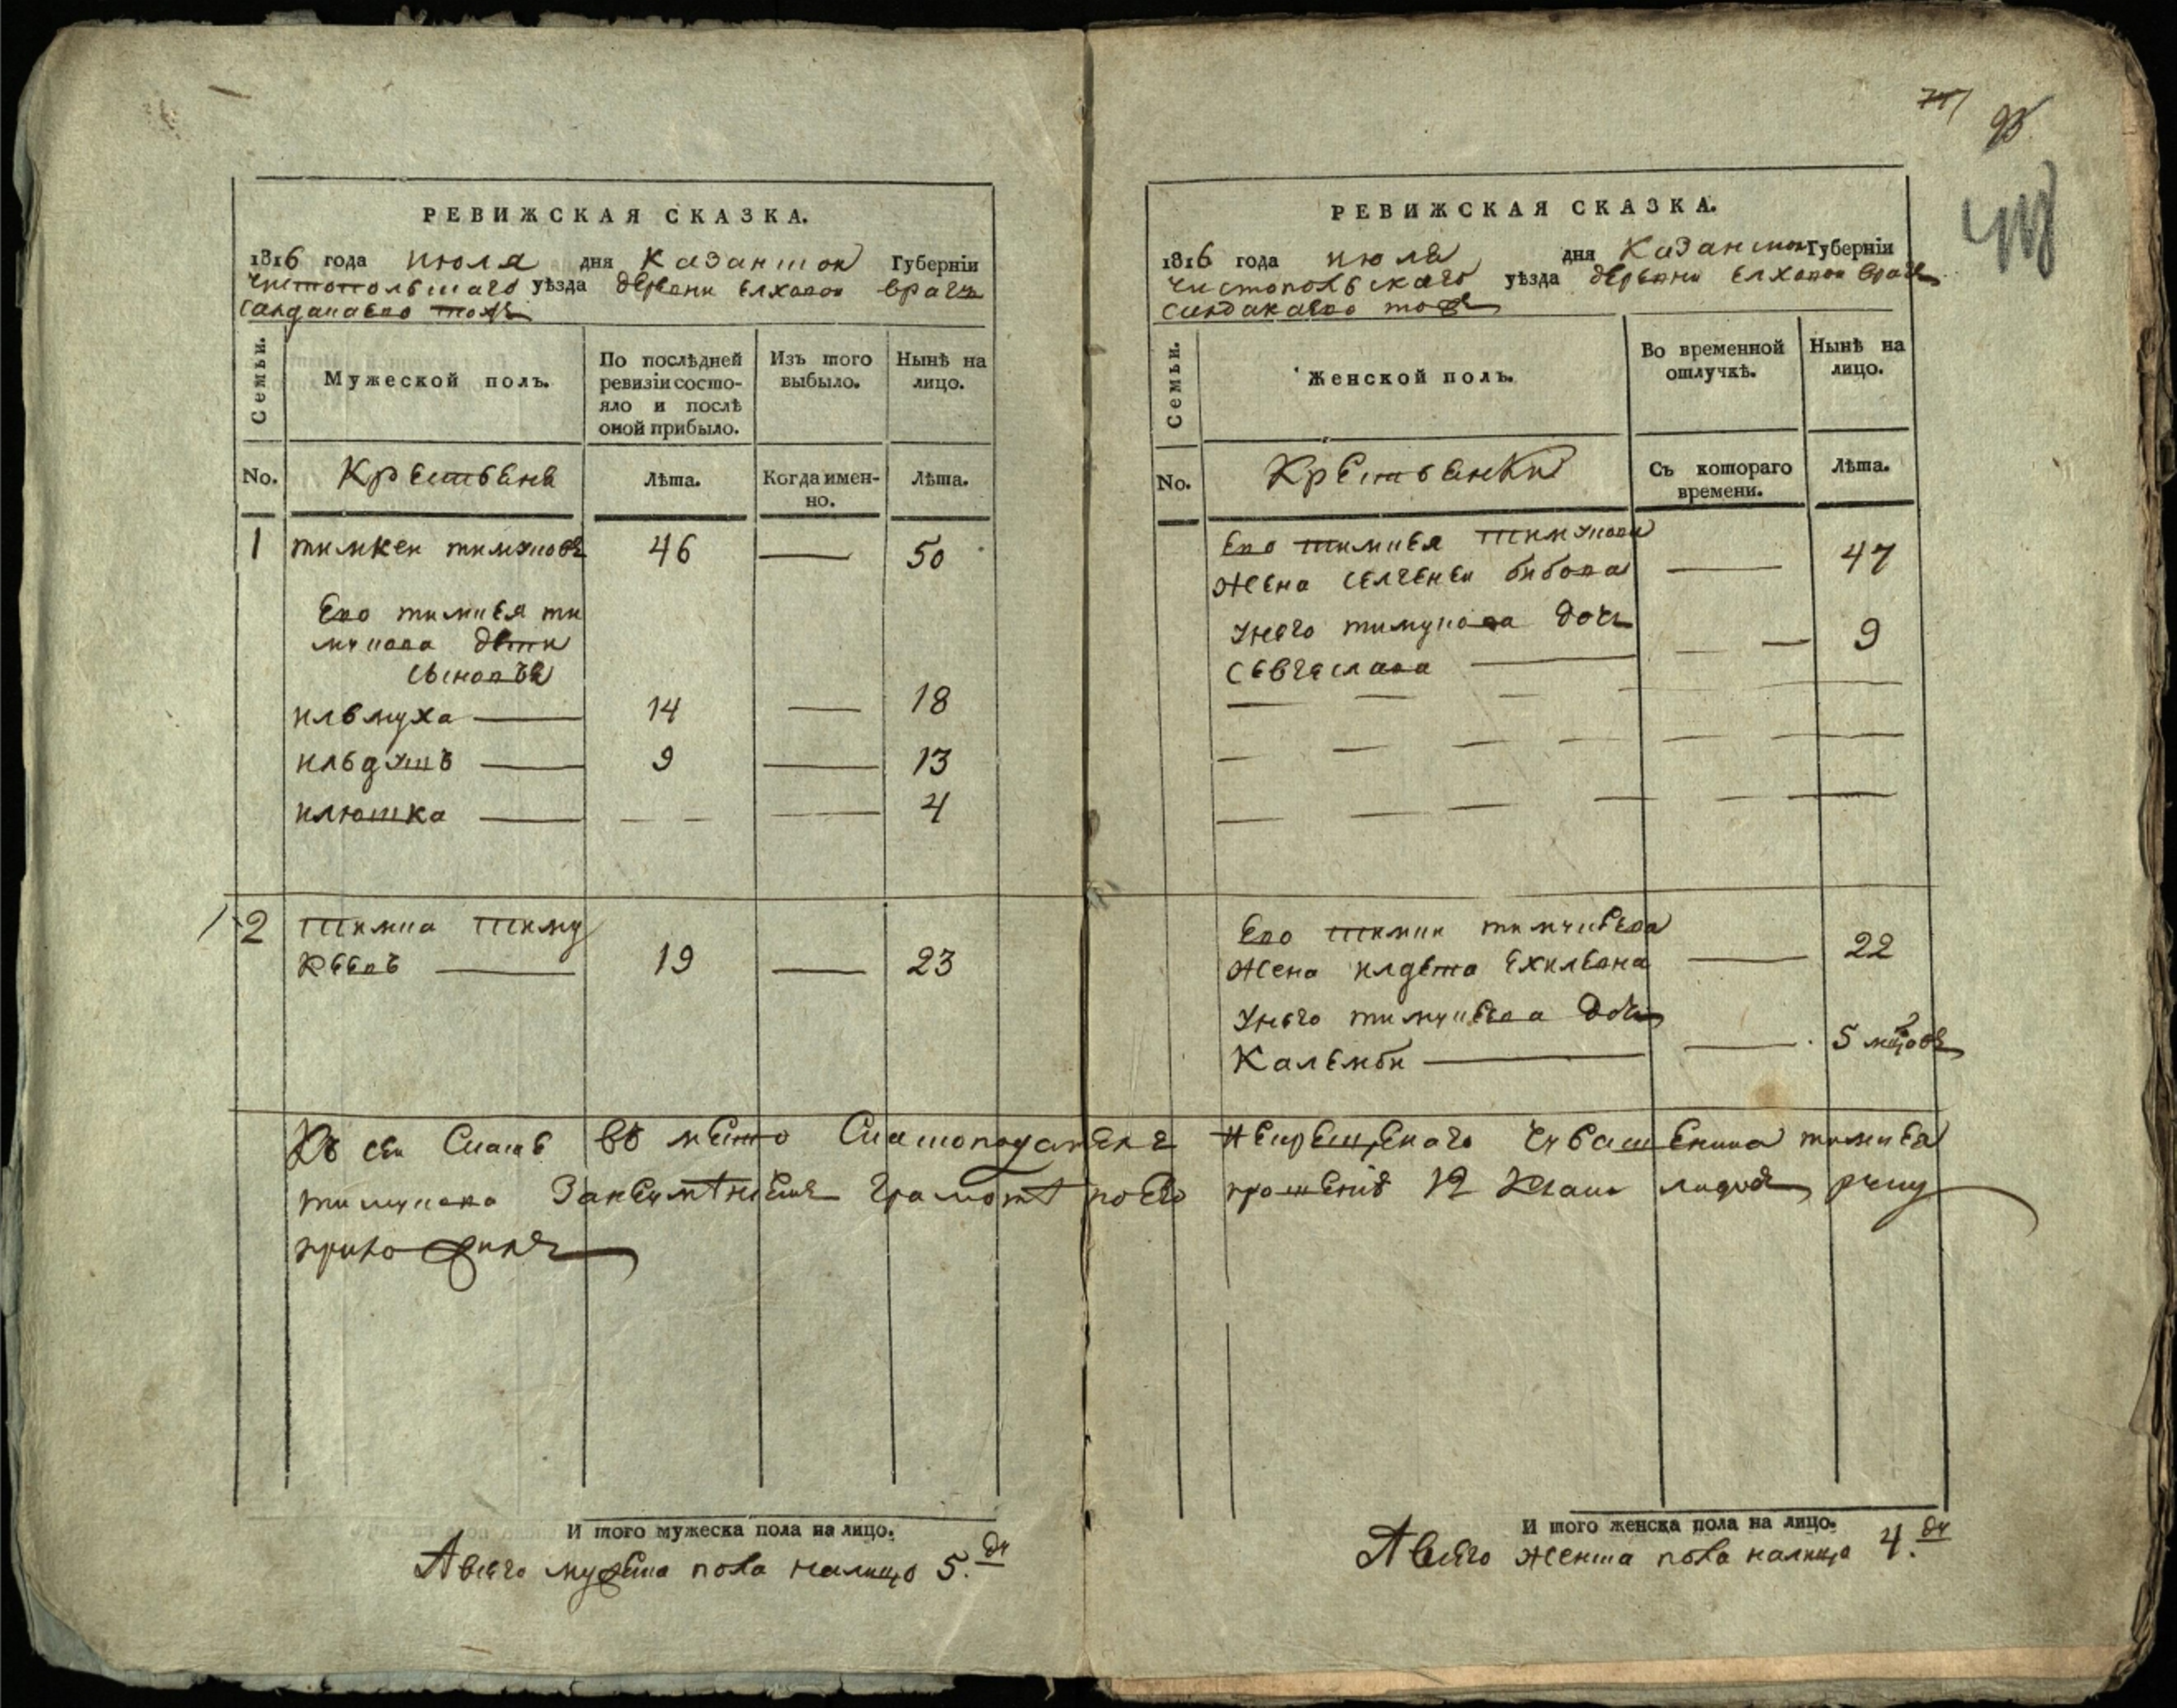 РЕВИЖСКАЯ СКАЗКА.
1816 года июля дня Казанской Губерніи
Чистопольскаго уѣзда деревни Елховой врагъ
Сандакаево тожъ
Семьи.
Мужеской полъ.
По послѣдней ревизіи состояло и послѣ оной прибыло.
Изъ того выбыло.
Нынѣ на лицо.
No.
Крестьяне
Лѣта.
Когда именно.
Лѣта.
1 тимкей тимуковъ 46 50
Ево тимкея ти
мукова дети
сыновья
ильмуха 14 18
ильдутъ 9 13
илюшка 4
2 Тимка Тиму
кеевъ 19 23
Къ сей Скаске въ место Скаскоподателя
тимукова
приложилъ
И того мужеска пола на лицо.
А всего мужска пола налицо 5. ду
РЕВИЖСКАЯ СКАЗКА.
1816 года июля дня Казанской Губерніи
Чистопольскаго уѣзда деревни Елховой врагъ
Сандакаево тожъ
Семьи.
Женской полъ.
Во временной отлучкѣ.
Нынѣ на лицо.
No.
Крестьянки
Съ котораго времени.
Лѣта.
Ево тимкея Тимукова
жена селченеи бибова 47
У него тимукова дочь 9
Ево тимки тимукеева 22
жена илдета
У него тимукеева дочь
Калемби 5 мцовъ
некрещенаго Чувашенина тимкея
прошенію руку
И того женска пола на лицо.
А всего женска пола налицо 4. ду